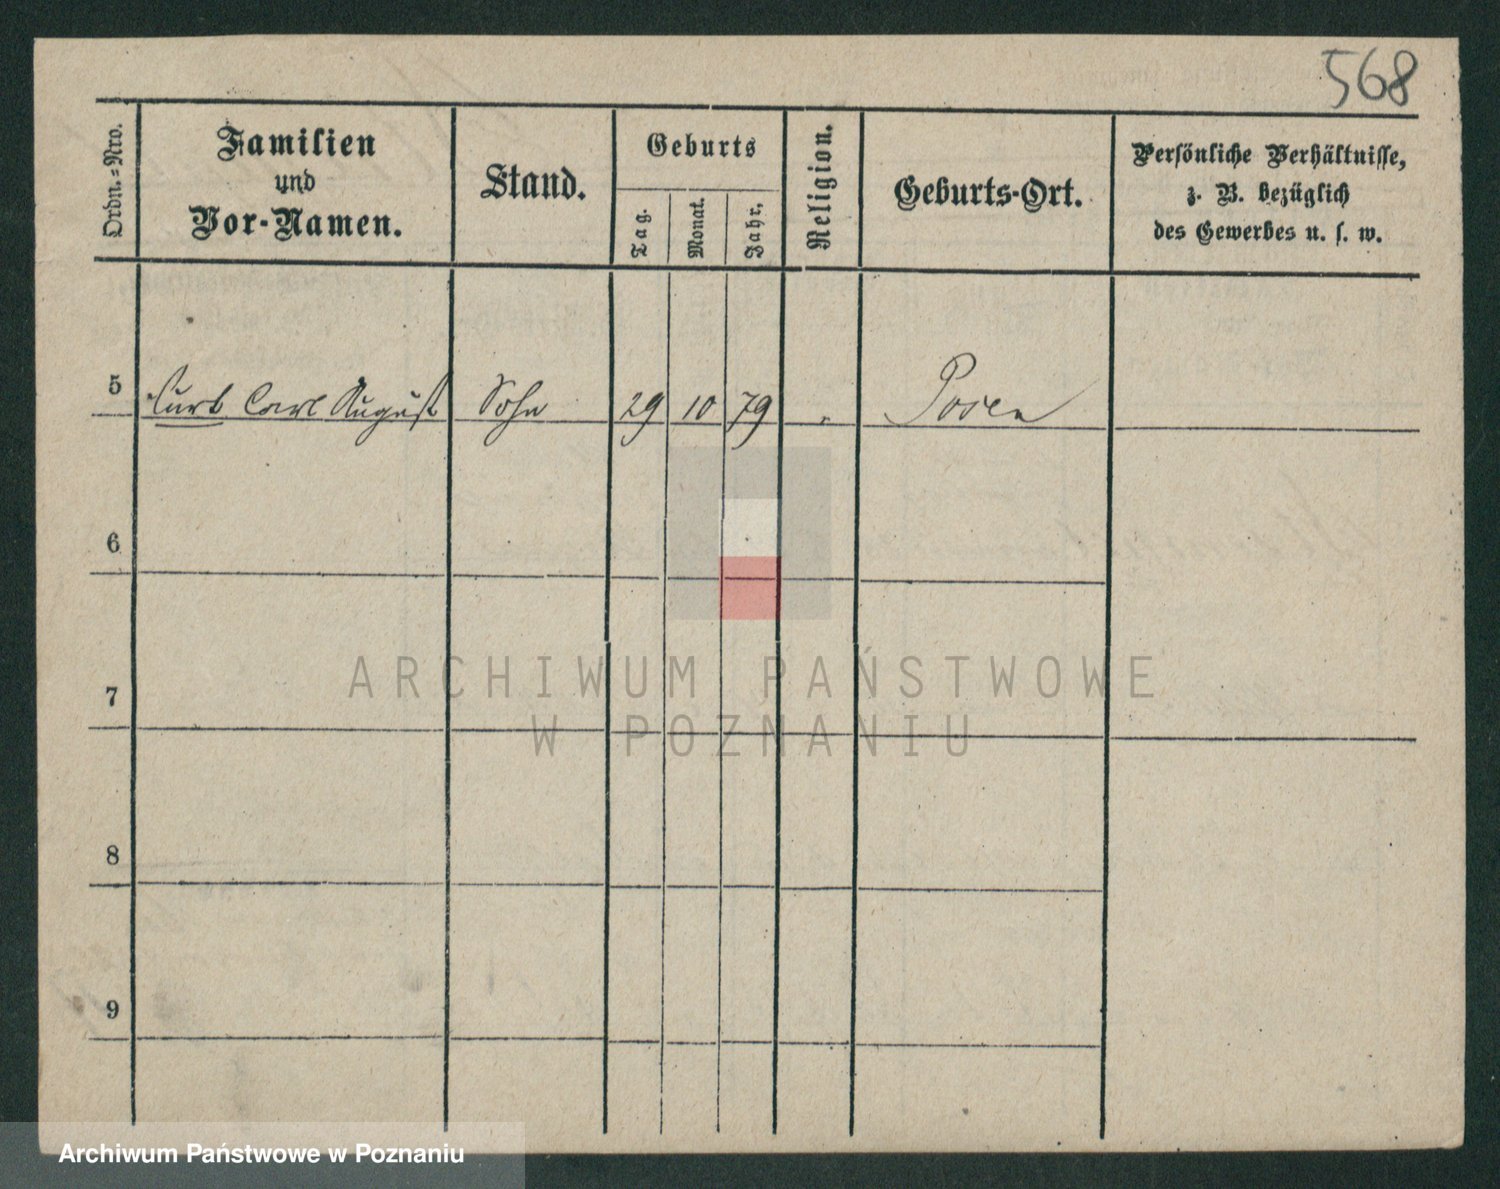 568
Ordn.-Nro.
Familien
und
Vor-Namen.
Stand.
Geburts
Tag.
Monat.
Jahr.
Religion.
Geburts-Ort.
Persönliche Verhältnisse,
z. B. bezüglich
des Gewerbes u. s. w.
5 Curt Carl August Sohn 29 10 79 " Posen
6
7
8
9
ARCHIWUM PAŃSTWOWE
W POZNANIU
Archiwum Państwowe w Poznaniu